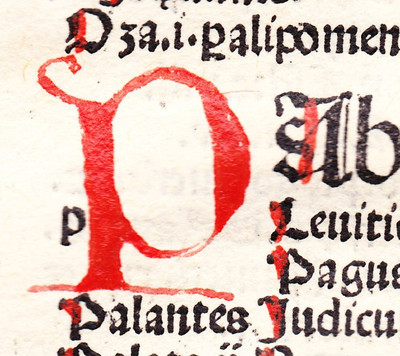 Oza.i.palipomen
P Ab
p Leuitic
Pagus
Palantes Judicu